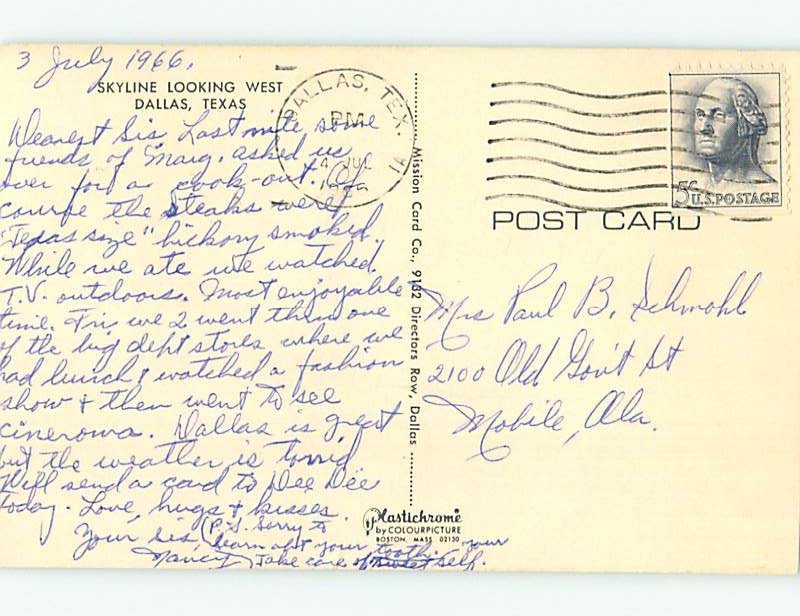 3 July 1966.
SKYLINE LOOKING WEST
DALLAS, TEXAS
Dearest Sis, Last nite some
friends of Marg. asked us
over for a cook-out. Of
course the steaks were
"Texas size" hickory smoked.
While we ate we watched
T.V. outdoors. Most enjoyable
time. Fri, we 2 went thru one
of the big dep't stores where we
had lunch & watched a fashion
show & then went to see
cinerama. Dallas is great
but the weather is torrid
Will send a card to Dee Dee
today. Love, hugs & kisses.
Your sis,
Nancy
(P.S. Sorry to
learn abt your tooth.
Take care of your sweet self.
DALLAS, TEX.
PM
4 JUL
1966
Mission Card Co., 9132 Directors Row, Dallas
Plastichrome
by COLOURPICTURE
BOSTON, MASS 02130
5¢ U.S. POSTAGE
POST CARD
Mrs Paul B. Schmohl
2100 Old Gov't St
Mobile, Ala.